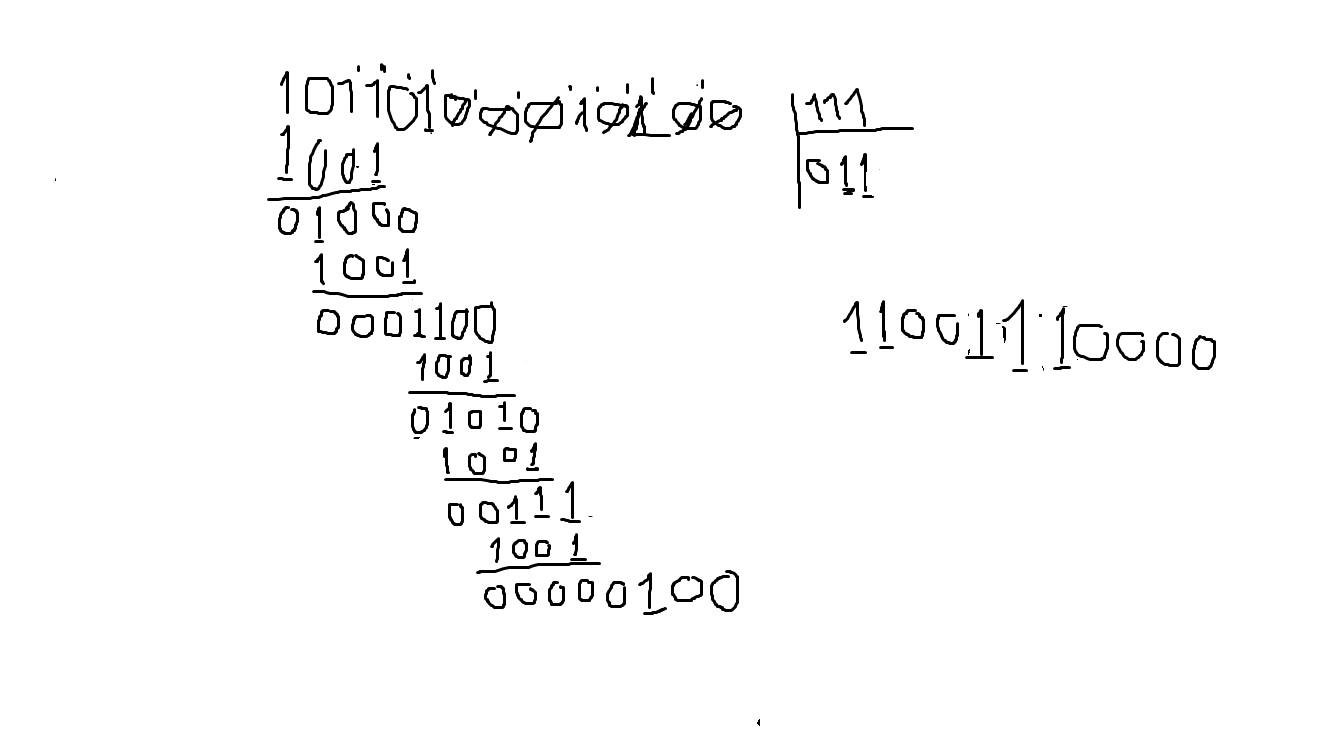 101101000010100 111
1001 011
01000
1001
0001100
11001110000
1001
01010
1001
00111
1001
00000100